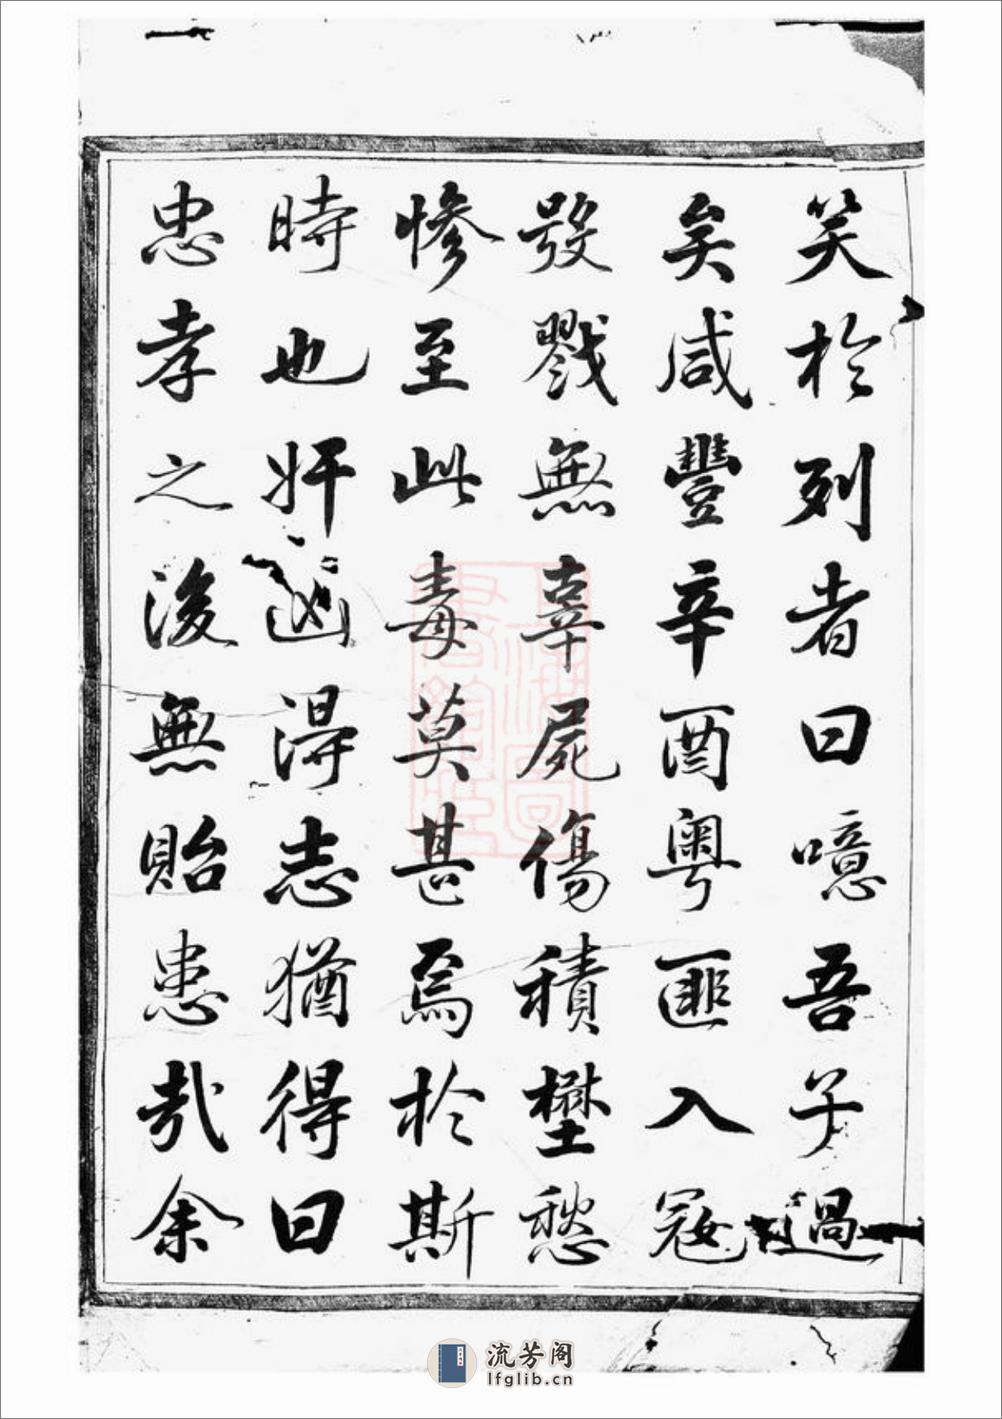 笑於列者曰噫吾子過
矣咸豐辛酉粵匪入寇
殺戮無辜屍傷積壄愁
慘至此毒莫甚焉於斯
時也奸凶得志猶得曰
忠孝之後無貽患哉余
流芳阁
lfglib.cn